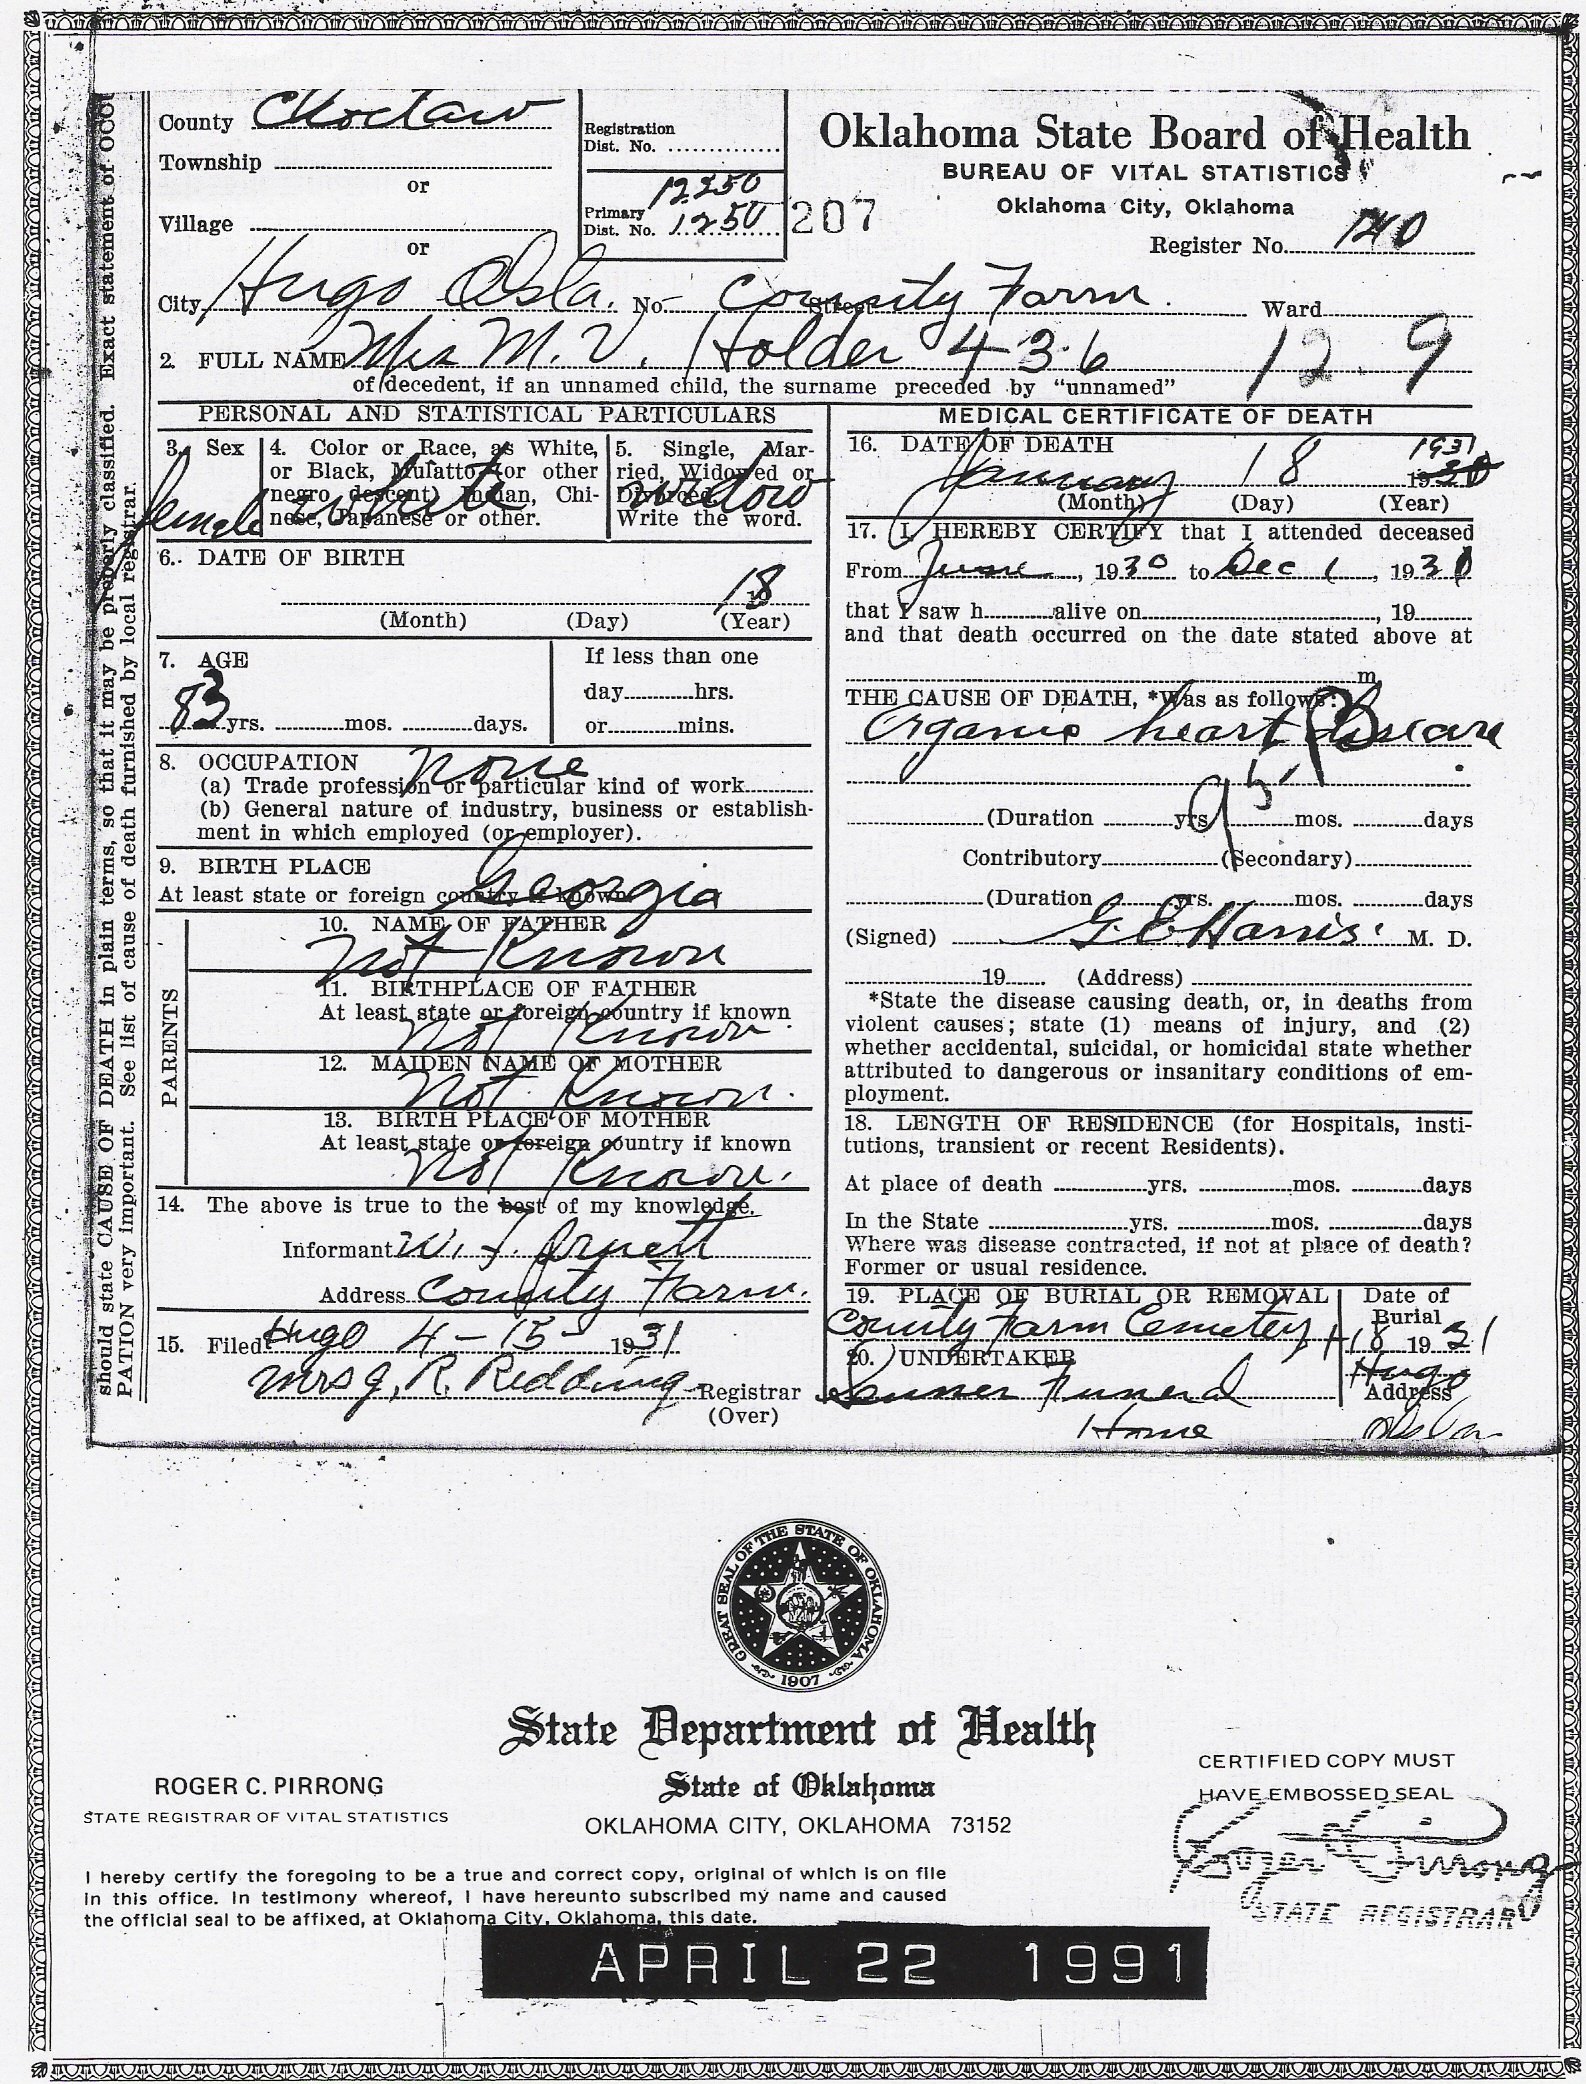 County Choctaw
Township
or
Village
or
Registration
Dist. No.
12250
Primary
Dist. No. 1250
207
Oklahoma State Board of Health
BUREAU OF VITAL STATISTICS
Oklahoma City, Oklahoma
Register No. 1240
City Hugo Okla. No County Farm. Street Ward
2. FULL NAME Mrs M. V. Holder 436 12 9
of decedent, if an unnamed child, the surname preceded by "unnamed"
PERSONAL AND STATISTICAL PARTICULARS
3. Sex
Female
4. Color or Race, as White,
or Black, Mulatto (or other
negro descent) Indian, Chi-
nese, Japanese or other.
White
5. Single, Mar-
ried, Widowed or
Divorced
Write the word.
widow
6. DATE OF BIRTH
18
(Month) (Day) (Year)
7. AGE
83 yrs. mos. days.
If less than one
day hrs.
or mins.
8. OCCUPATION none
(a) Trade profession or particular kind of work
(b) General nature of industry, business or establish-
ment in which employed (or employer).
9. BIRTH PLACE
At least state or foreign country if known
Georgia
PARENTS
10. NAME OF FATHER
not Known
11. BIRTHPLACE OF FATHER
At least state or foreign country if known
not Known
12. MAIDEN NAME OF MOTHER
not Known.
13. BIRTH PLACE OF MOTHER
At least state or foreign country if known
not Known.
14. The above is true to the best of my knowledge.
Informant W. T.
Address County Farm.
15. Filed Hugo 4-15- 1931
Mrs J. R. Redding Registrar
(Over)
MEDICAL CERTIFICATE OF DEATH
16. DATE OF DEATH
1931
January 18 1930
(Month) (Day) (Year)
17. I HEREBY CERTIFY that I attended deceased
From June, 1930 to Dec 1, 1930
that I saw h alive on , 19
and that death occurred on the date stated above at
m
THE CAUSE OF DEATH, *Was as follows:
Organic heart disease
95
(Duration yrs. mos. days
Contributory (Secondary)
(Duration yrs. mos. days
(Signed) G. E Harris. M. D.
19 (Address)
*State the disease causing death, or, in deaths from
violent causes; state (1) means of injury, and (2)
whether accidental, suicidal, or homicidal state whether
attributed to dangerous or insanitary conditions of em-
ployment.
18. LENGTH OF RESIDENCE (for Hospitals, insti-
tutions, transient or recent Residents).
At place of death yrs. mos. days
In the State yrs. mos. days
Where was disease contracted, if not at place of death?
Former or usual residence.
19. PLACE OF BURIAL OR REMOVAL
County Farm Cemetery
Date of
Burial
1-18 1931
20. UNDERTAKER
Funeral
Home
Hugo
Address
Okla
should state CAUSE OF DEATH in plain terms, so that it may be properly classified. Exact statement of OCCU
PATION very important. See list of cause of death furnished by local registrar.
GREAT SEAL OF THE STATE OF OKLAHOMA
1907
State Department of Health
State of Oklahoma
OKLAHOMA CITY, OKLAHOMA 73152
ROGER C. PIRRONG
STATE REGISTRAR OF VITAL STATISTICS
CERTIFIED COPY MUST
HAVE EMBOSSED SEAL
Roger C. Pirrong
STATE REGISTRAR
I hereby certify the foregoing to be a true and correct copy, original of which is on file
in this office. In testimony whereof, I have hereunto subscribed my name and caused
the official seal to be affixed, at Oklahoma City, Oklahoma, this date.
APRIL 22 1991